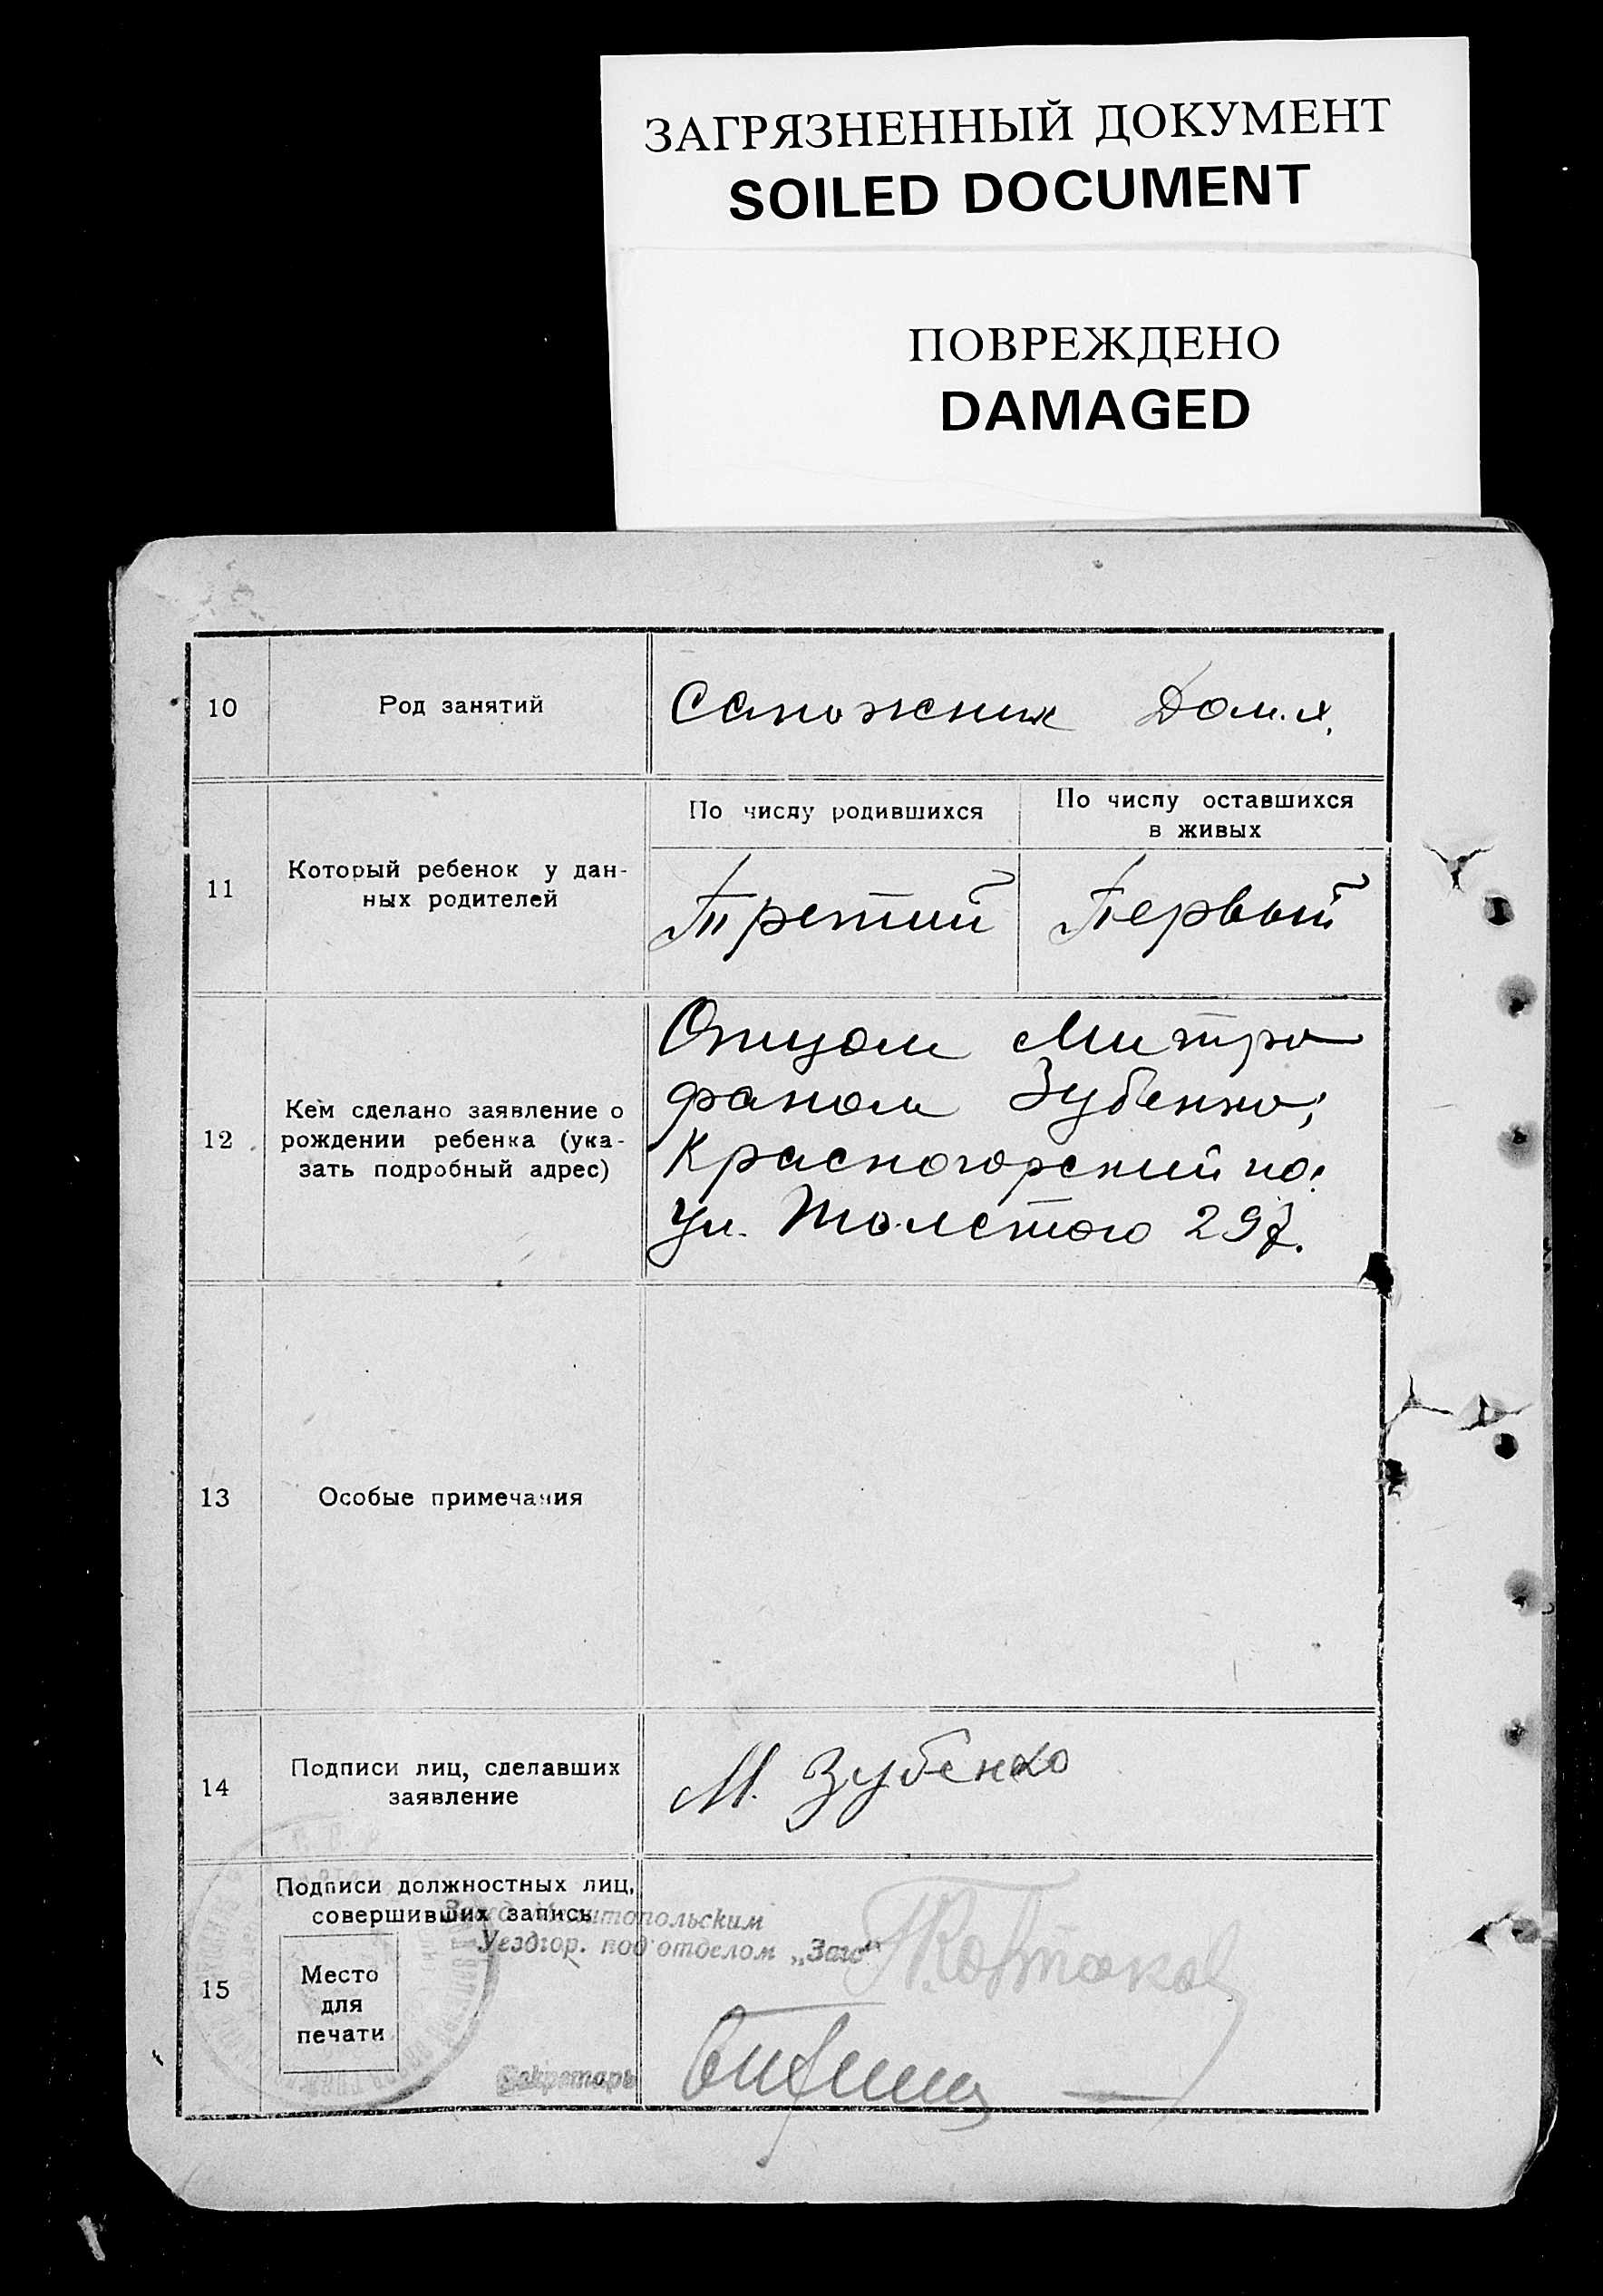 ЗАГРЯЗНЕННЫЙ ДОКУМЕНТ
SOILED DOCUMENT
ПОВРЕЖДЕНО
DAMAGED
10
Род занятий
Сапожник Дом.х.
11
Который ребенок у дан-
ных родителей
По числу родившихся
Третий
По числу оставшихся
в живых
Первый
12
Кем сделано заявление о
рождении ребенка (ука-
зать подробный адрес)
Отцом Митро
фаном Зубенко;
Красногорский по:
Ул. Толстого 297.
13
Особые примечания
14
Подписи лиц, сделавших
заявление
М. Зубенко
15
Подписи должностных лиц,
совершивших запись
Место
для
печати
Мелитопольским
Уездгор. подотделом „Загс“
Секретарь